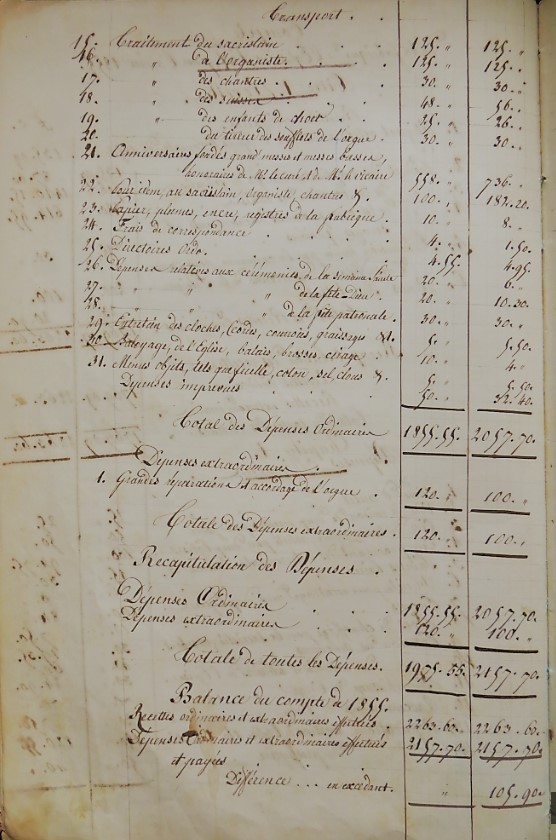 Transport . .
15. Traitement du sacristain . . 125. " 125. "
16. " de l'organiste. . . 125. " 125. "
17. " des chantres . . . 30. " 30. "
18. " des suisses . . 48. " 56. "
19. " des enfants de choeur . . 25. " 26. "
20. du tireur des soufflets de l'orgue . 30. " 30. "
21. Anniversaires fondés grand'messes et messes basses,
honoraires de Mr. le curé & de Mr. le vicaire 558. " 736. "
22. Pour idem, au sacristain, organiste, chantres &. 100. " 182.20.
23. Papier, plumes, encre, registres à la fabrique . 10. " 8. "
24. Frais de correspondance . . 4. " 1.50.
25. Directoires Ordo. . . 4.55. 4.95.
26. Dépenses relatives aux cérémonies de la semaine Sainte 20. " 6. "
27. " " de la fête-Dieu . 20. " 10.30.
28. " " de la fête patronale. 30. " 30. "
29. Entretien des cloches, Cordes, graissages &. 5. " 5.50.
30. Balayage, de l'Eglise, balais, brosses, cirage 10. " 4. "
31. Menus objets, tels que ficelle, coton, sel, clous &. 5. " 5.50.
Dépenses imprévues . . 50. " 32.40.
Total des Dépenses Ordinaires 1855.55. 2057.70.
Dépenses extraordinaires
1. Grandes réparations & accordage de l'orgue . 120. " 100. "
Totale des Dépenses extraordinaires. 120. " 100. "
Recapitulation des Dépenses .
Dépenses Ordinaires . . 1855.55. 2057.70.
Dépenses extraordinaires . . 120. " 100. "
Totale de toutes les Dépenses. 1975.55. 2157.70.
Balance du compte de 1855.
Recettes ordinaires et extraordinaires effectués . 2263.60. 2263.60.
Dépenses Ordinaires et extraordinaires effectués 2157.70. 2157.70.
et payées
Différence . . . en excédant. " 105.90.